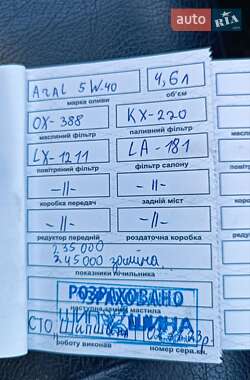 auto RIA
Aral 5W-40
4,6л
марка оливи
об'єм
OX-388
KX-220
масляний фільтр
паливний фільтр
LX-1211
LA-181
повітряний фільтр
фільтр салону
-||-
-||-
коробка передач
задній міст
-||-
-||-
редуктор передній
роздаточна коробка
235000
245000 заміна
показники лічильника
РОЗРАХОВАНО
наступна заміна мастила
СТО
роботу виконав
номер сервісу